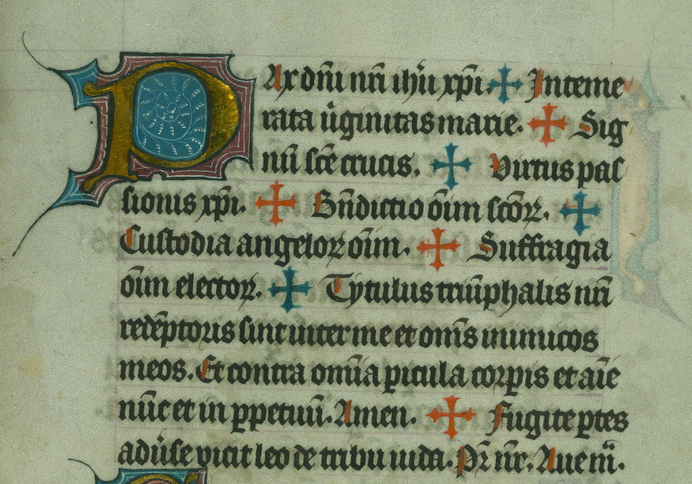 Pax dñi nr̃i ihũ xp̃i. ✠ Inteme
rata ũginitas marie. ✠ Sig
nũ scẽ crucis. ✠ Virtus pas
sionis xp̃i. ✠ Bñdictio oĩm scõꝝ. ✠
Custodia angeloꝝ oĩm. ✠ Suffragia
oĩm electoꝝ. ✠ Tytulus triũphalis nr̃i
redẽptoris sint inter me et om̃s inimicos
meos. Et contra om̃ia ꝑicula corꝑis et aĩe
nũc et in ꝑpetuũ. Amen. ✠ Fugite ꝑtes
adũse vicit leo de tribu iuda. Pr̃ nr̃. Aue m̃.